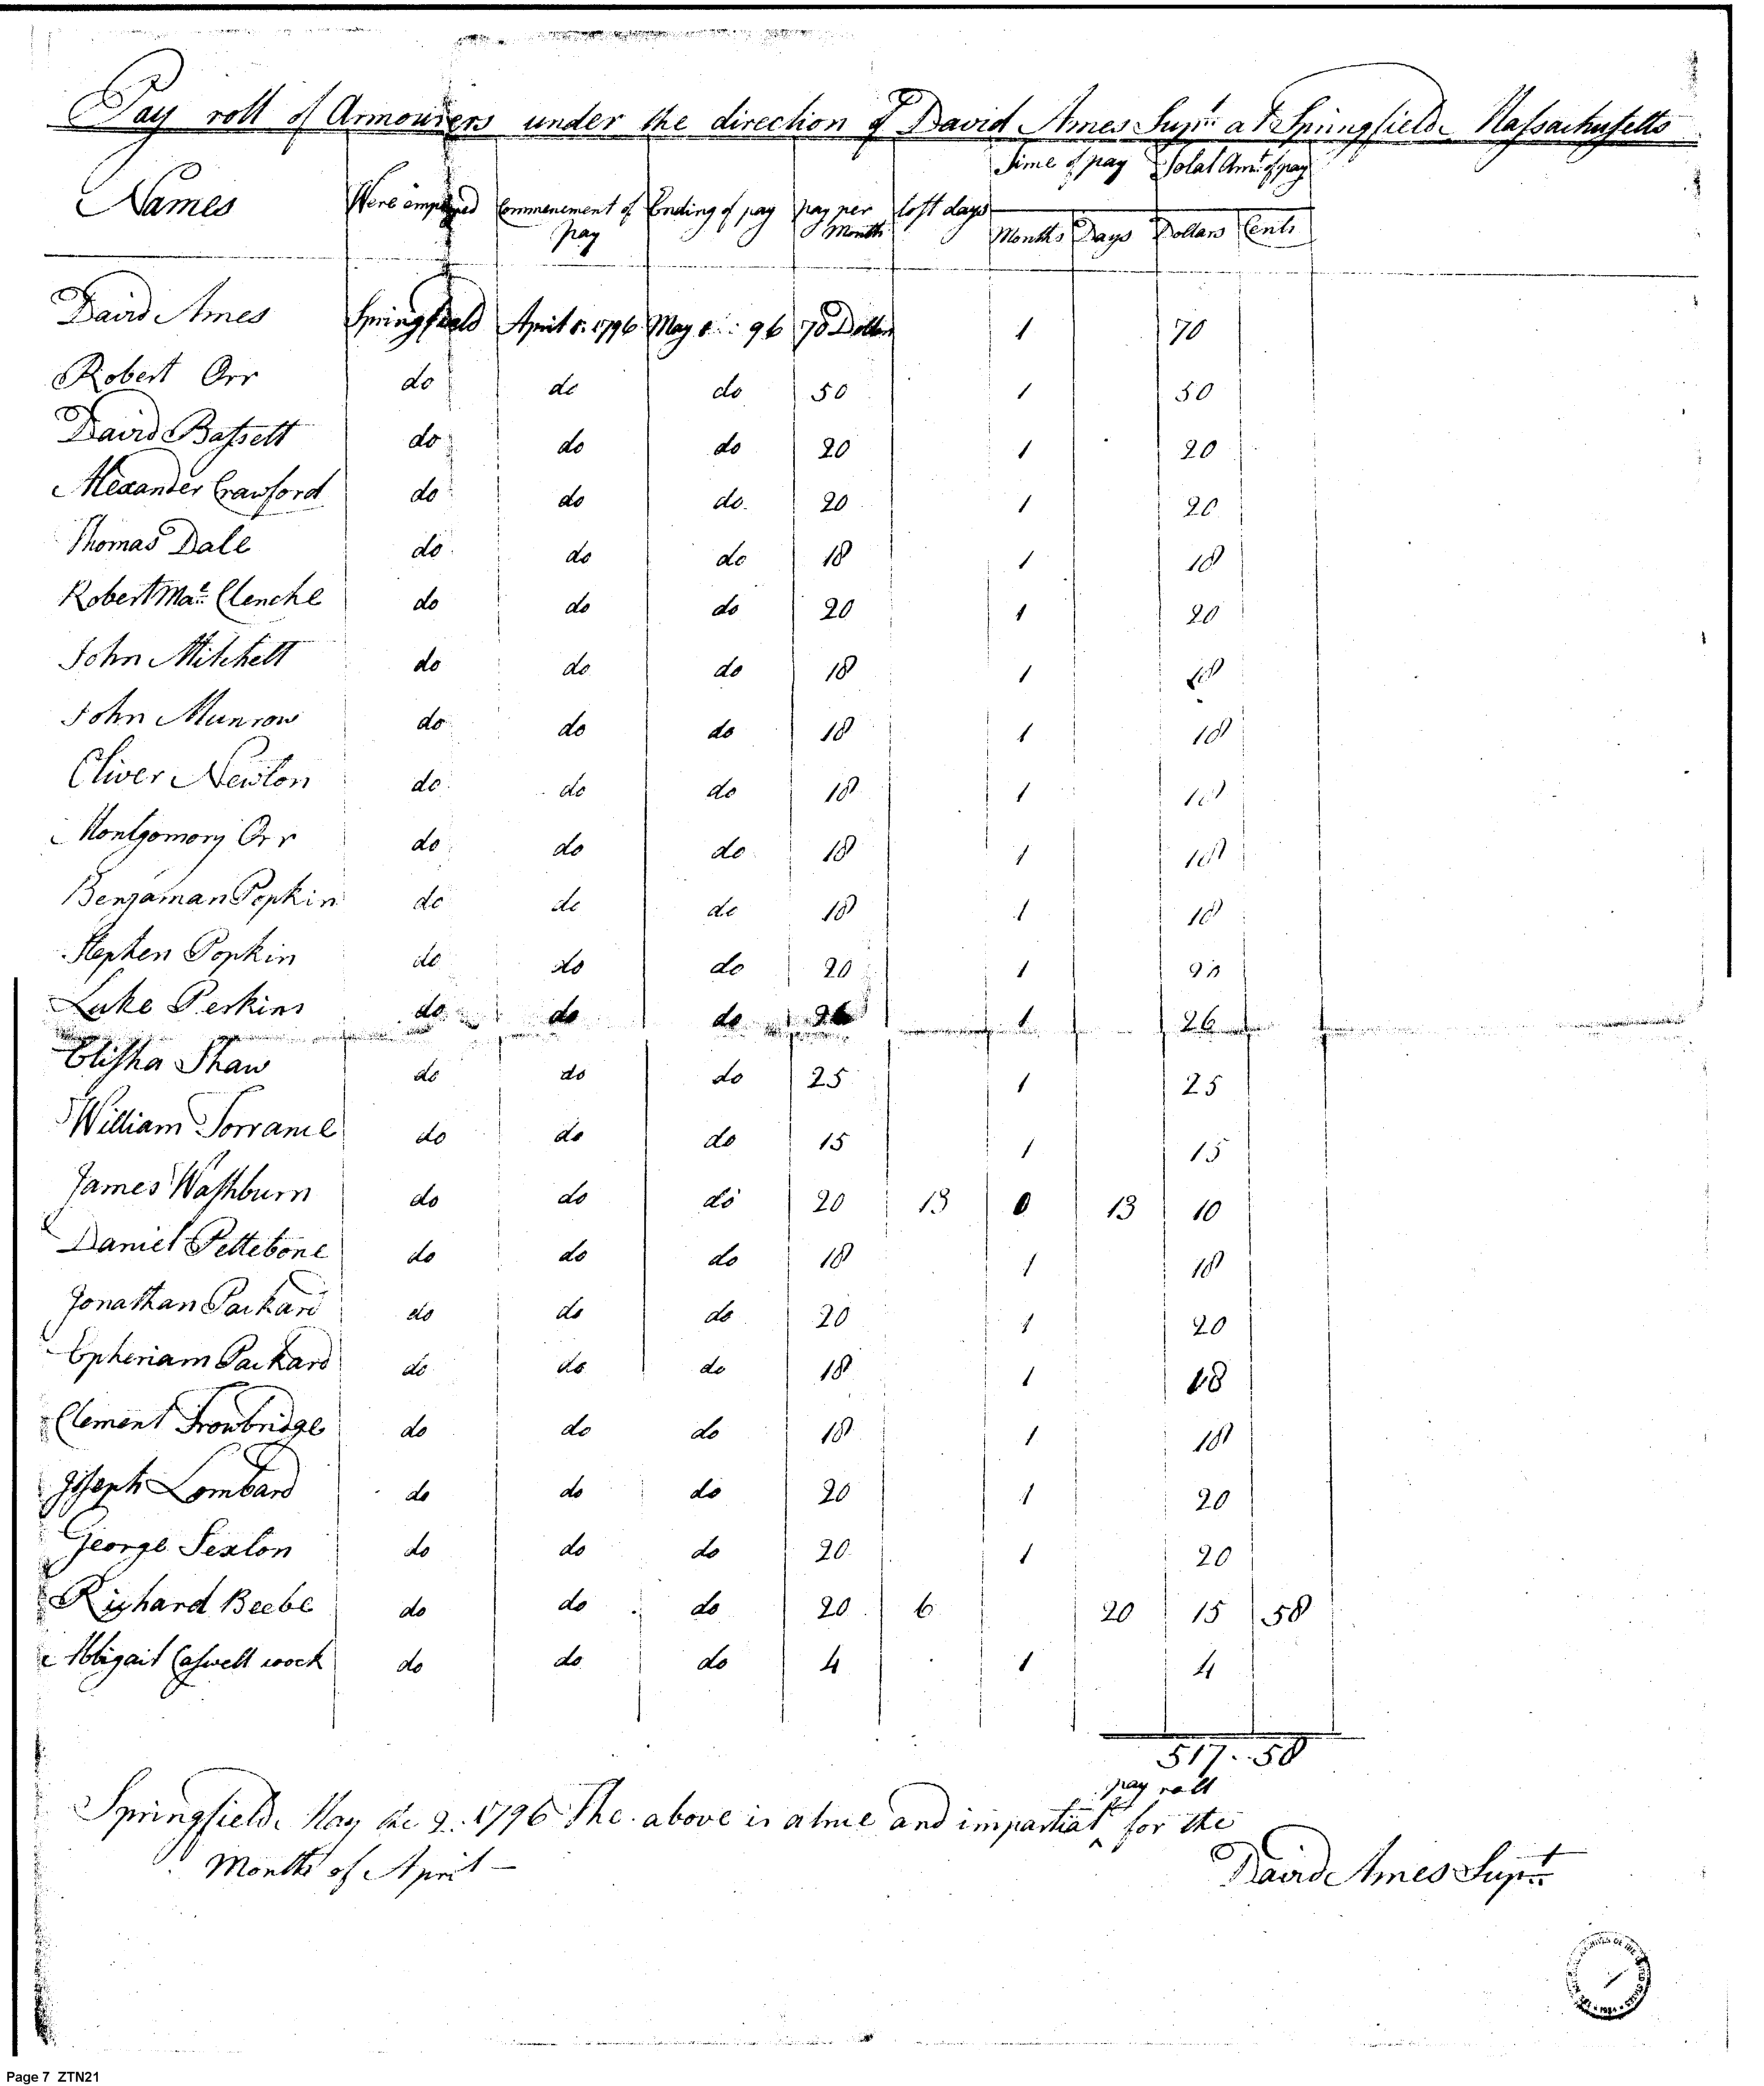 Pay roll of Armourers under the direction of David Ames Supt at Springfield Massachusetts
Names Were employed Commencement of pay Ending of pay pay per Month lost days Time of pay Total Amt of pay
Months Days Dollars Cents
David Ames Springfield April 1796 May 96 70 Dollars 1 70
Robert Orr do do do 50 1 50
David Bassett do do do 20 1 20
Alexander Crawford do do do 20 1 20
Thomas Dale do do do 18 1 18
Robert Mac Clenche do do do 20 1 20
John Mitchell do do do 18 1 18
John Munrow do do do 18 1 18
Oliver Newton do do do 18 1 18
Montgomory Orr do do do 18 1 18
Benjaman Popkin do do do 18 1 18
Stephen Popkin do do do 20 1 20
Luke Perkins do do do 26 1 26
Elisha Shaw do do do 25 1 25
William Torrance do do do 15 1 15
James Washburn do do do 20 13 0 13 10
Daniel Pettebone do do do 18 1 18
Jonathan Packard do do do 20 1 20
Epheriam Packard do do do 18 1 18
Clement Trowbridge do do do 18 1 18
Joseph Lombard do do do 20 1 20
George Sexton do do do 20 1 20
Richard Beebe do do do 20 6 20 15 58
Abigail Caswell coock do do do 4 1 4
517..58
pay roll
Springfield May the 9. 1796 The above is a true and impartial ^ for the
Months of April —
David Ames Supt
Page 7 ZTN21